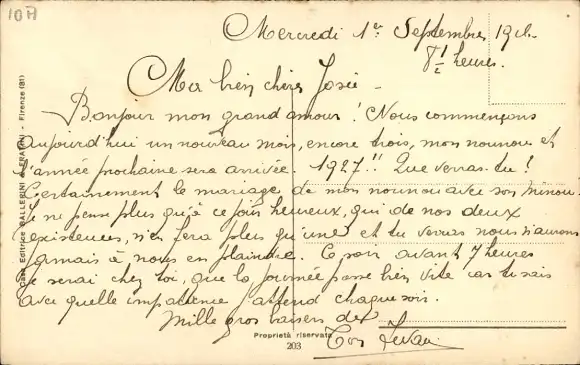 10A
Mercredi 1er Septembre 1926.
8 1/2 heures.
Ma bien chère Josée -
Bonjour mon grand amour ! Nous commençons
aujourd'hui un nouveau mois, encore trois, mon nounou et
l'année prochaine sera arrivée. 1927 !! Que verras-tu ?
Certainement le mariage de mon nounou avec son minou.
Je ne pense plus qu'à ce jour heureux, qui de nos deux
existences, n'en fera plus qu'une et tu verras nous n'aurons
jamais à nous en plaindre. Ce soir avant 7 heures
je serai chez toi, que la journée passe bien vite car tu sais
avec quelle impatience j'attend chaque soir.
Mille gros baisers de
Ton
Proprietà riservata
203
Casa Editrice BALLERINI & FRATINI - Firenze (81)